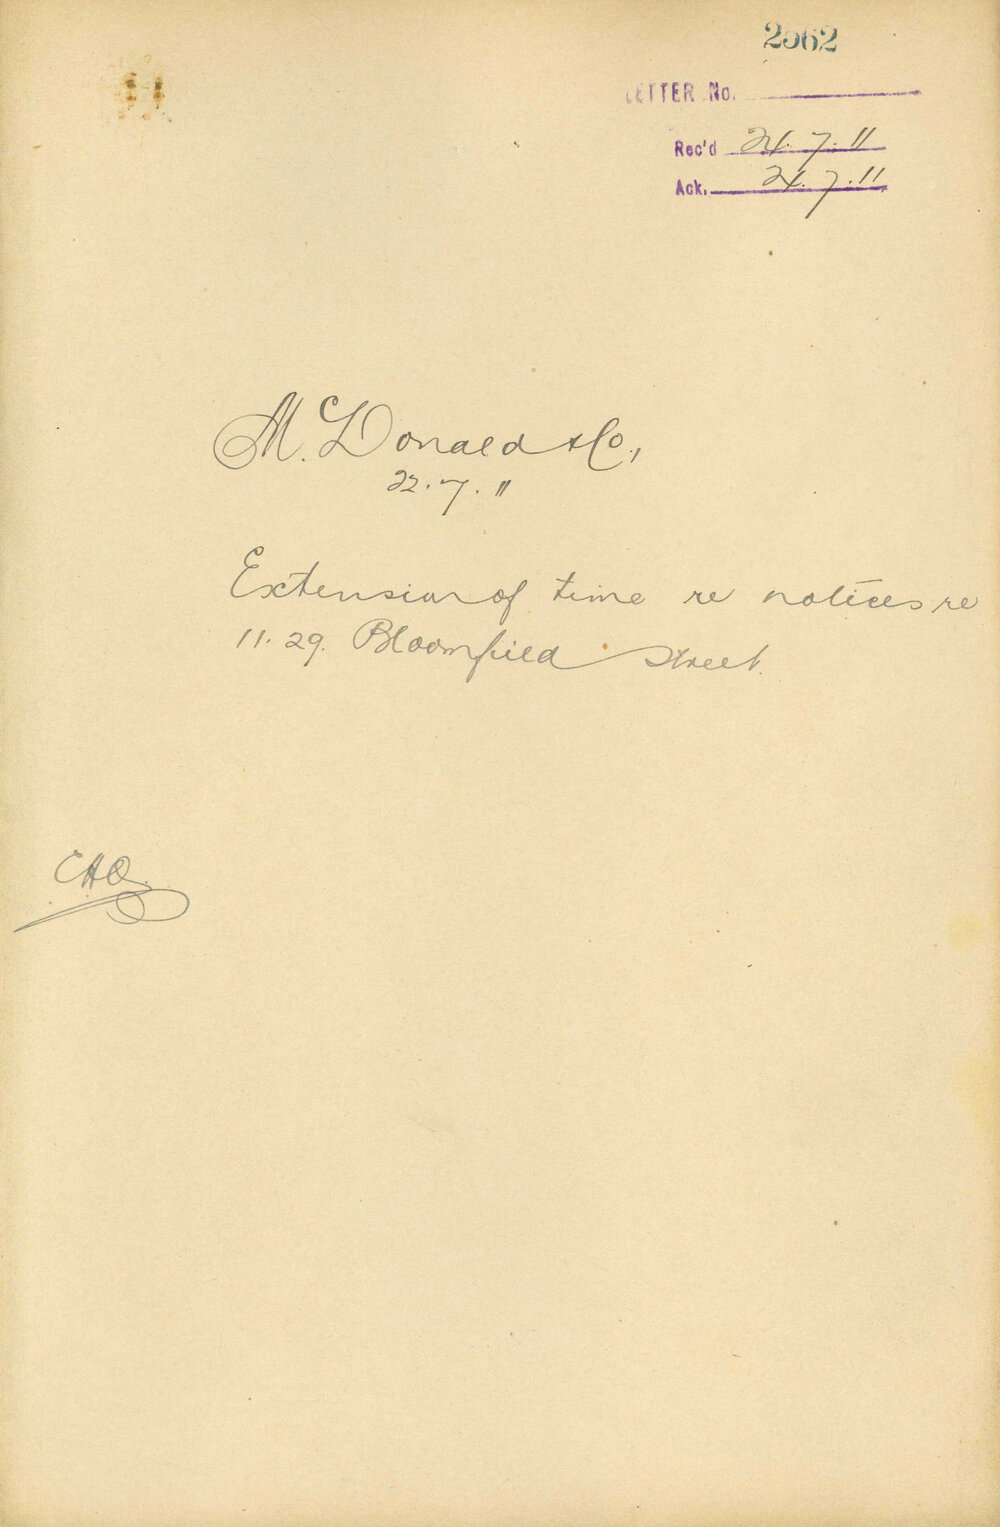 2562
LETTER No.
Rec'd 24. 7. 11
Ack. 24. 7. 11
McDonald & Co.,
22. 7. 11
Extension of time re notices re
11. 29. Bloomfield Street.